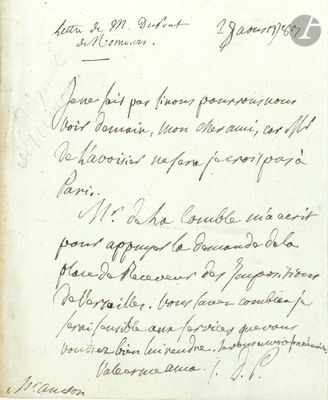 Lettre de M. DuPont
de Nemours.
28 aoust 1787
Je ne sais pas si nous pourrons nous
voir demain, mon cher ami, car Mr
de Lavoisier ne sera je crois pas à
Paris.
Mr. de la Comble m'a ecrit
pour appuyer la demande de la
place de Receveur des Impositions
de Versailles. Vous savez combien je
serai sensible aux services que vous
voudrez bien lui rendre. Je vous
Vale et me ama. D. P.